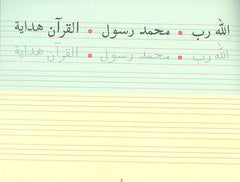 الله رب • محمد رسول • القرآن هداية
الله رب • محمد رسول • القرآن هداية